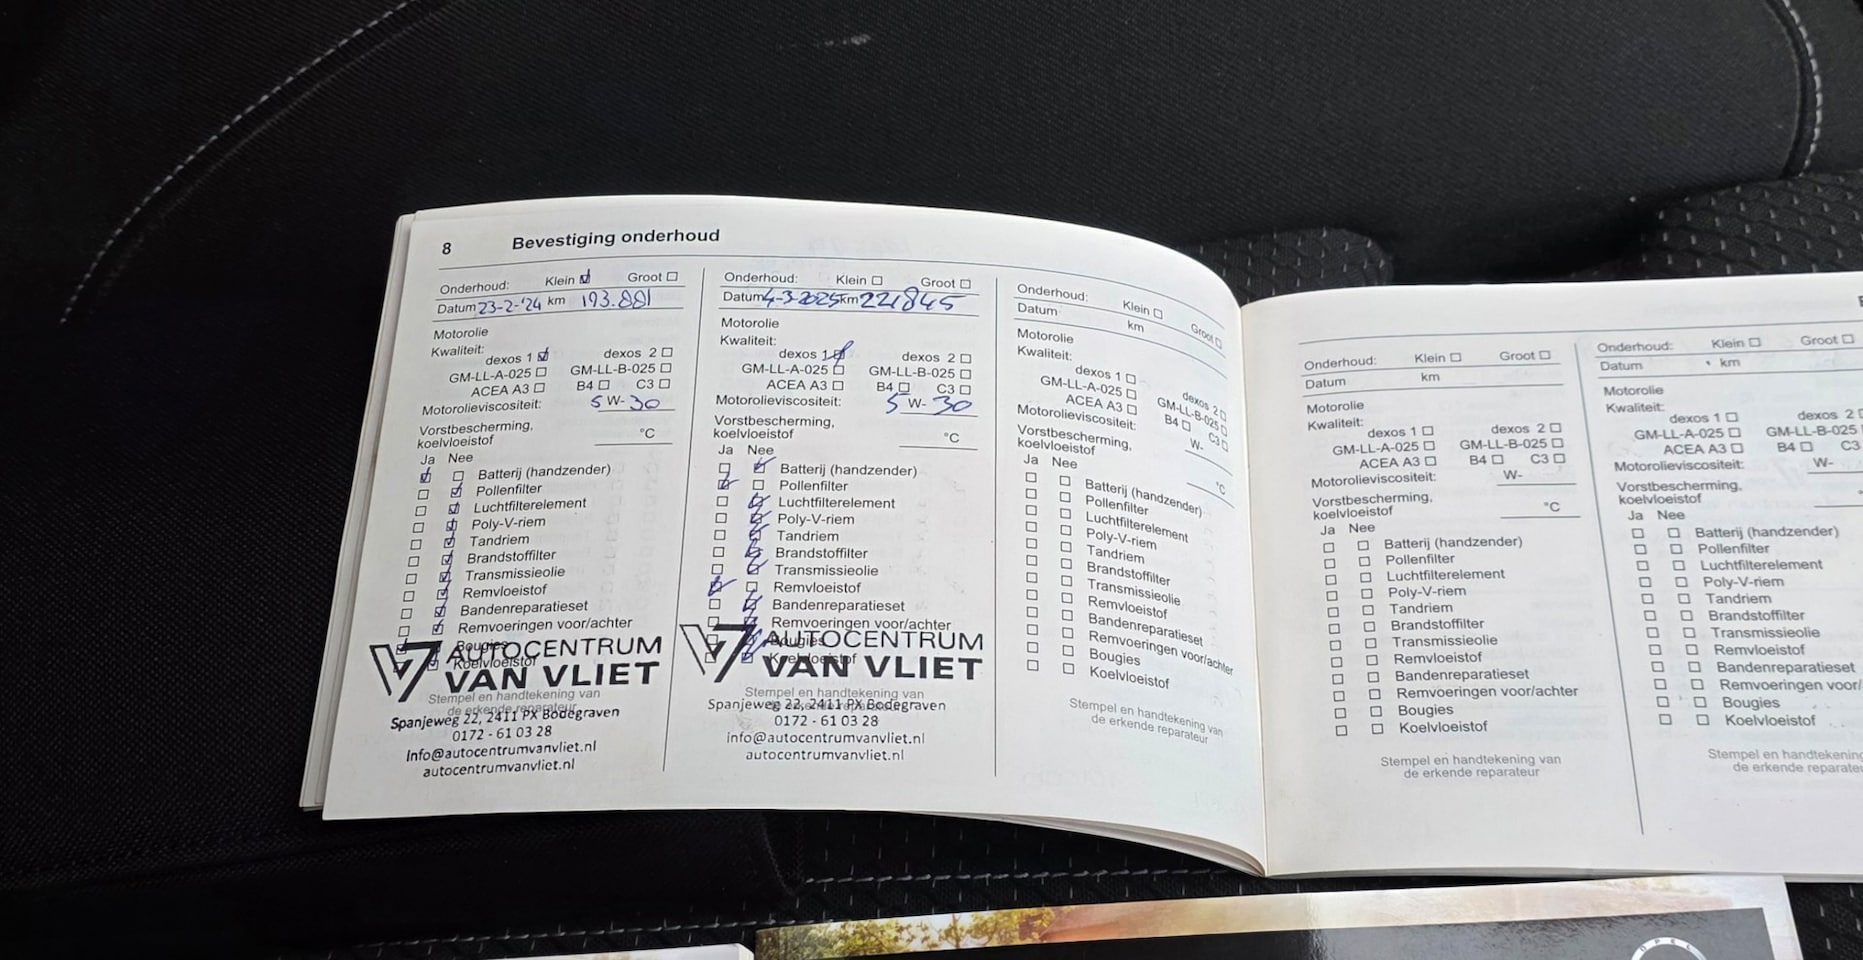 8 Bevestiging onderhoud
Onderhoud: Klein Groot
Datum 23-2-'24 km 193.881
Motorolie
Kwaliteit:
dexos 1 dexos 2
GM-LL-A-025 GM-LL-B-025
ACEA A3 B4 C3
Motorolieviscositeit: 5 W- 30
Vorstbescherming,
koelvloeistof °C
Ja Nee
Batterij (handzender)
Pollenfilter
Luchtfilterelement
Poly-V-riem
Tandriem
Brandstoffilter
Transmissieolie
Remvloeistof
Bandenreparatieset
Remvoeringen voor/achter
Bougies
Koelvloeistof
AUTOCENTRUM
VAN VLIET
Stempel en handtekening van
de erkende reparateur
Spanjeweg 22, 2411 PX Bodegraven
0172 - 61 03 28
Info@autocentrumvanvliet.nl
autocentrumvanvliet.nl
Onderhoud: Klein Groot
Datum 4-3-2025 km 221845
Motorolie
Kwaliteit:
dexos 1 dexos 2
GM-LL-A-025 GM-LL-B-025
ACEA A3 B4 C3
Motorolieviscositeit: 5 W- 30
Vorstbescherming,
koelvloeistof °C
Ja Nee
Batterij (handzender)
Pollenfilter
Luchtfilterelement
Poly-V-riem
Tandriem
Brandstoffilter
Transmissieolie
Remvloeistof
Bandenreparatieset
Remvoeringen voor/achter
Bougies
Koelvloeistof
AUTOCENTRUM
VAN VLIET
Stempel en handtekening van
de erkende reparateur
Spanjeweg 22, 2411 PX Bodegraven
0172 - 61 03 28
info@autocentrumvanvliet.nl
autocentrumvanvliet.nl
Onderhoud: Klein Groot
Datum km
Motorolie
Kwaliteit:
dexos 1 dexos 2
GM-LL-A-025 GM-LL-B-025
ACEA A3 B4 C3
Motorolieviscositeit: W-
Vorstbescherming,
koelvloeistof °C
Ja Nee
Batterij (handzender)
Pollenfilter
Luchtfilterelement
Poly-V-riem
Tandriem
Brandstoffilter
Transmissieolie
Remvloeistof
Bandenreparatieset
Remvoeringen voor/achter
Bougies
Koelvloeistof
Stempel en handtekening van
de erkende reparateur
Onderhoud: Klein Groot
Datum km
Motorolie
Kwaliteit:
dexos 1 dexos 2
GM-LL-A-025 GM-LL-B-025
ACEA A3 B4 C3
Motorolieviscositeit: W-
Vorstbescherming,
koelvloeistof °C
Ja Nee
Batterij (handzender)
Pollenfilter
Luchtfilterelement
Poly-V-riem
Tandriem
Brandstoffilter
Transmissieolie
Remvloeistof
Bandenreparatieset
Remvoeringen voor/achter
Bougies
Koelvloeistof
Stempel en handtekening van
de erkende reparateur
Onderhoud: Klein Groot
Datum km
Motorolie
Kwaliteit:
dexos 1 dexos 2
GM-LL-A-025 GM-LL-B-025
ACEA A3 B4 C3
Motorolieviscositeit: W-
Vorstbescherming,
koelvloeistof
Ja Nee
Batterij (handzender)
Pollenfilter
Luchtfilterelement
Poly-V-riem
Tandriem
Brandstoffilter
Transmissieolie
Remvloeistof
Bandenreparatieset
Remvoeringen voor/
Bougies
Koelvloeistof
Stempel en handtekening
de erkende reparate
OPEL